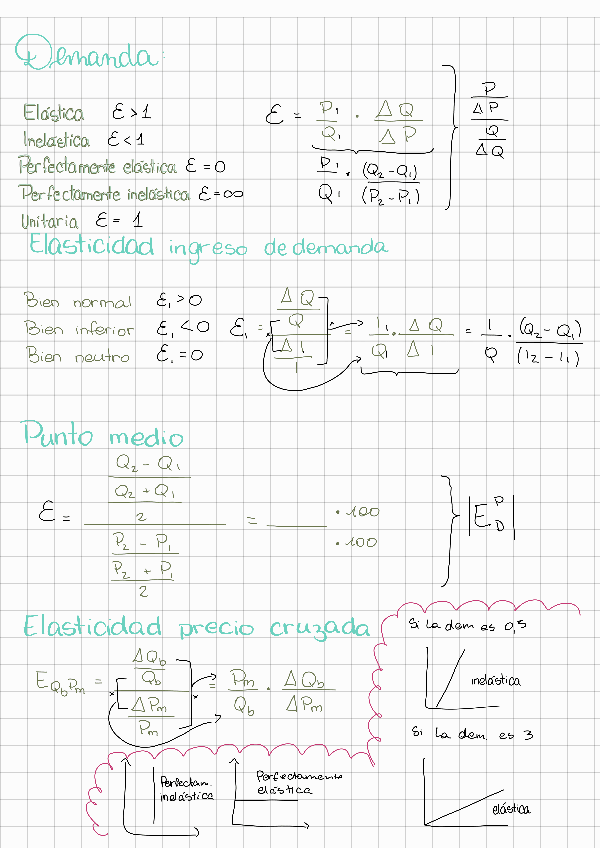 Demanda:
Elástica ε > 1
Inelástica ε < 1
Perfectamente elástica ε = 0
Perfectamente inelástica ε = ∞
Unitaria ε = 1
ε = P₁/Q₁ · ΔQ/ΔP
P₁/Q₁ · (Q₂-Q₁)/(P₂-P₁)
P/ΔP / Q/ΔQ
Elasticidad ingreso de demanda
Bien normal ε₁ > 0
Bien inferior ε₁ < 0
Bien neutro ε₁ = 0
ε₁ = ΔQ/Q / ΔI/I = I₁/Q₁ · ΔQ/ΔI = I/Q · (Q₂-Q₁)/(I₂-I₁)
Punto medio
ε = (Q₂ - Q₁)/((Q₂ + Q₁)/2) / (P₂ - P₁)/((P₂ + P₁)/2) = ____ · 100 · 100
|E_D^P|
Elasticidad precio cruzada
E Q_b P_m = ΔQ_b/Q_b / ΔP_m/P_m = P_m/Q_b · ΔQ_b/ΔP_m
Si la dem es 0,5
inelástica
Si la dem. es 3
elástica
Perfectam.
inelástica
Perfectamente
elástica